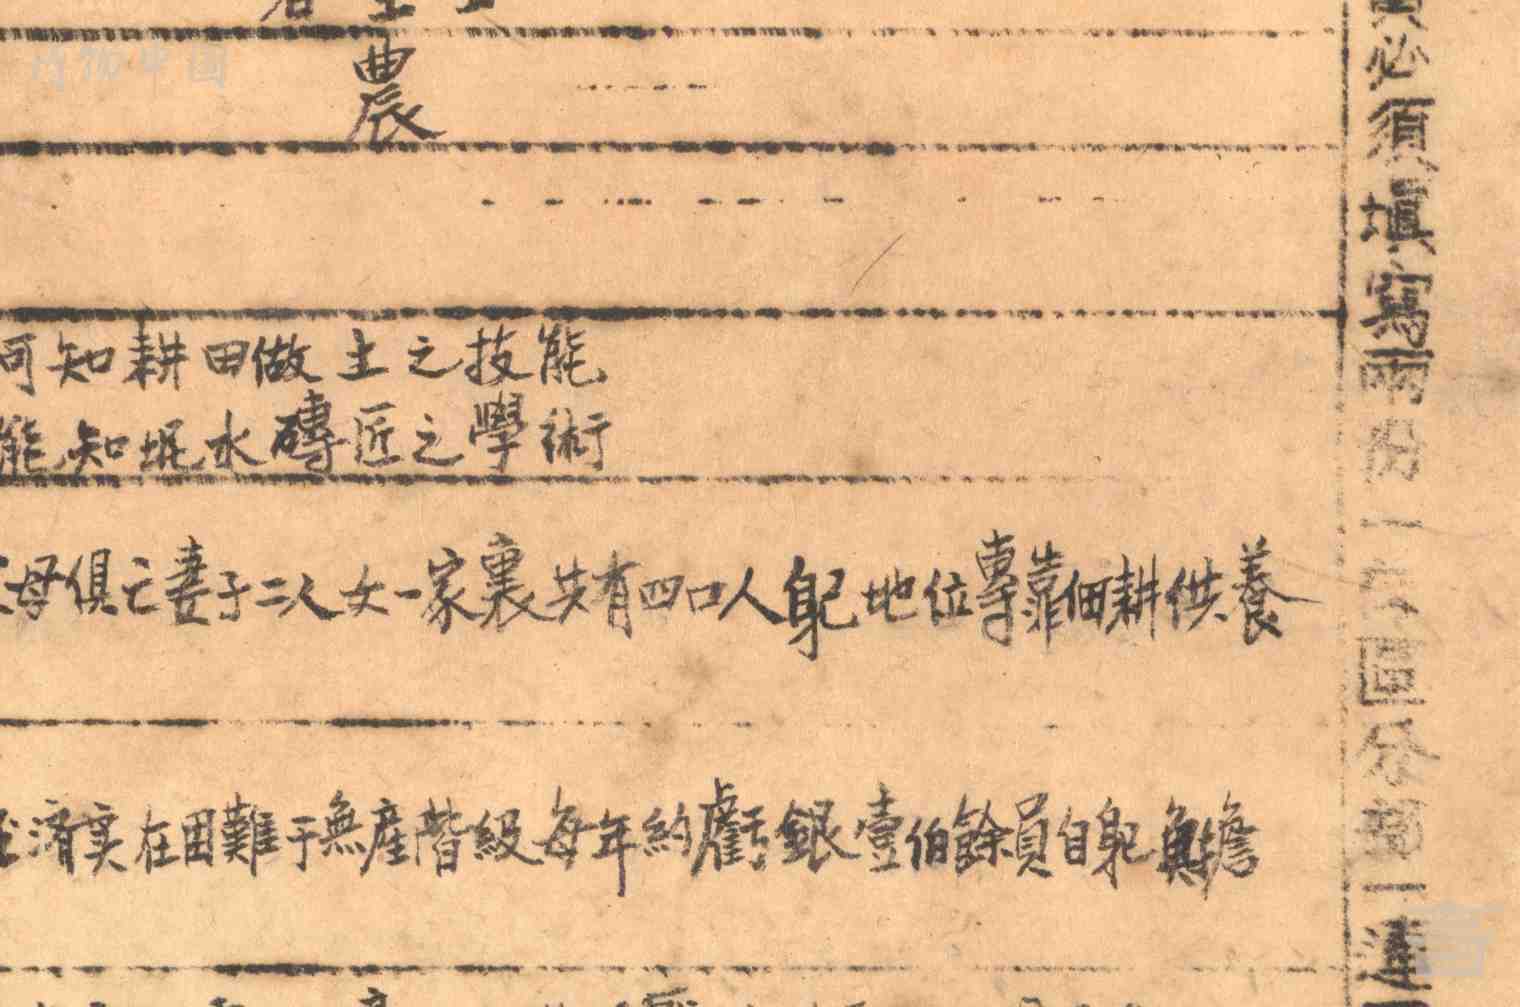 農
可知耕田做土之技能
能知坭水磚匠之學術
母俱亡妻子二人女一家裏共有四口人躬地位專靠佃耕供養
濟実在困難于無産階級每年約虧銀壹伯餘員自躬負擔
必須填寫兩份一存區分部一連